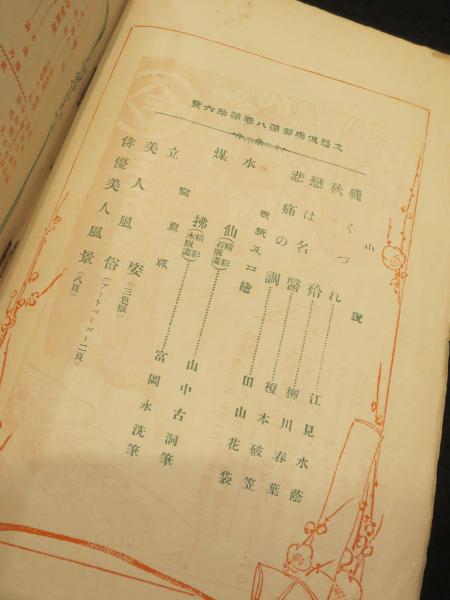 文藝倶樂部第八卷第拾六號
小說
磯くづれ……江見水蔭
秋袷……柳川春葉
戀は名醫……榎本破笠
悲痛の調……田山花袋
表紙及口繪
水仙(精彩石版畫)……山中古洞筆
煤拂(精彩木版畫)……富岡永洗筆
寫眞版
立美人風姿(三色版)
美人風俗(アートペーパー二頁)
俳優美人風景(八頁)